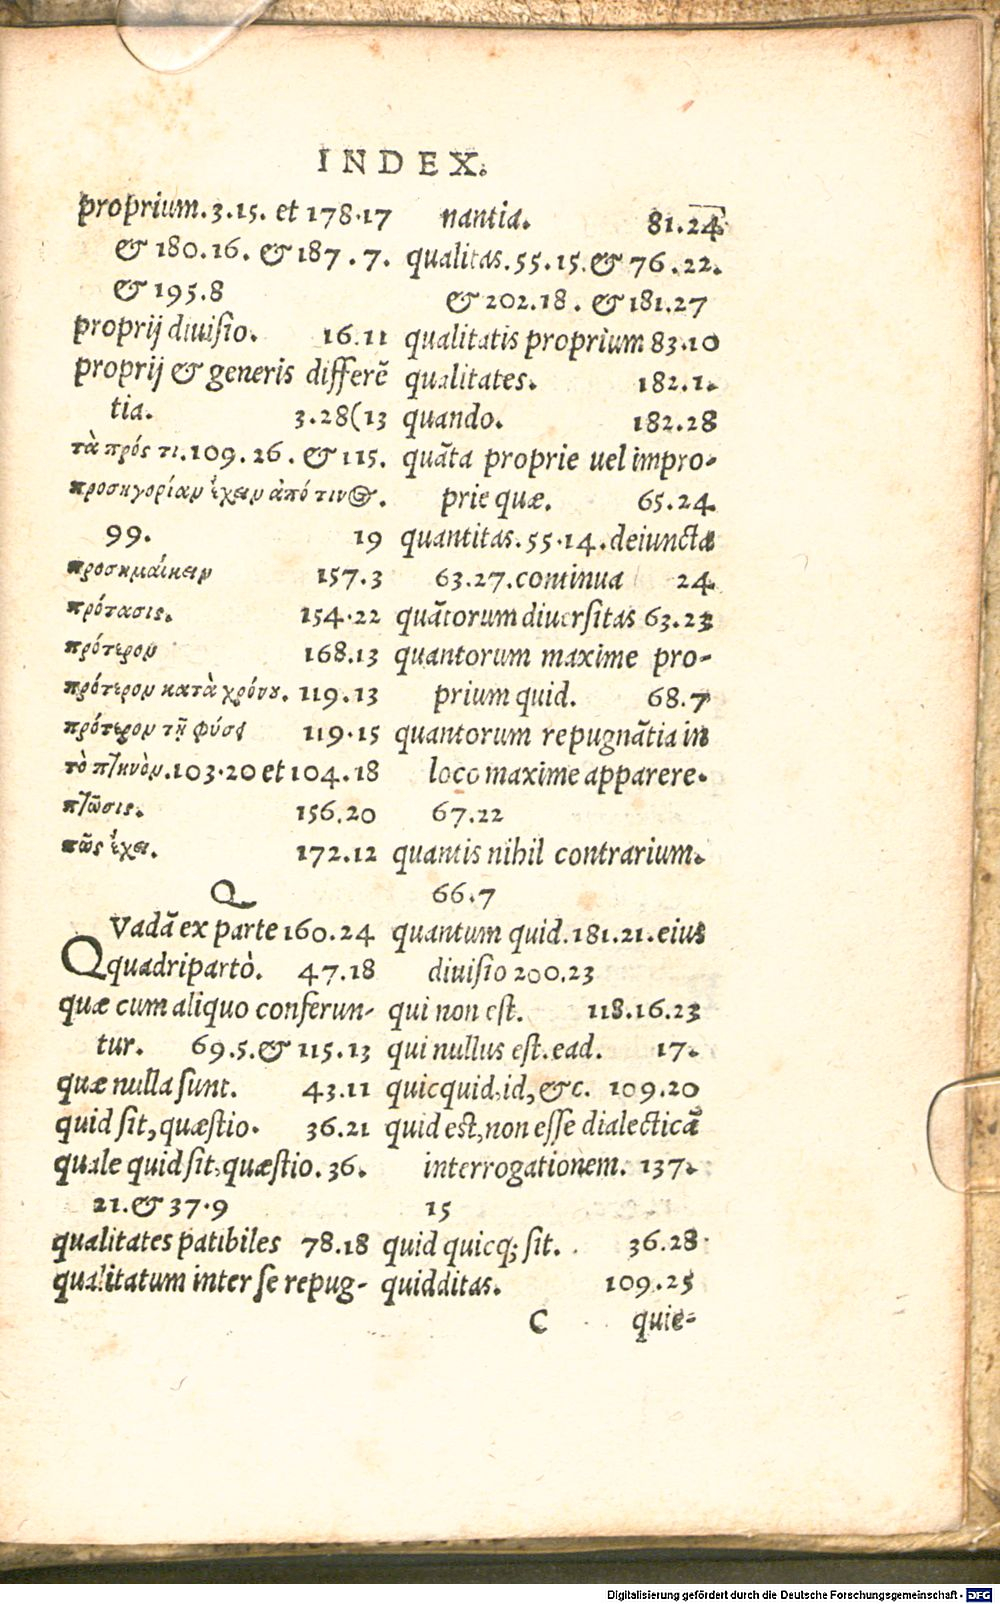 INDEX.
proprium.3.15. et 178.17
& 180.16. & 187.7.
& 195.8
proprij diuisio. 16.11
proprij & generis differē
tia. 3.28(13
τὰ πρός τι.109.26. & 115.
προσηγορίαν ἔχειν ἀπό τινος.
99. 19
προσημαίνειν 157.3
πρότασις. 154.22
πρότερον 168.13
πρότερον κατὰ χρόνου. 119.13
πρότερον τῇ φύσει 119.15
τὸ πτηνὸν.103.20 et 104.18
πτῶσις. 156.20
πῶς ἔχει. 172.12
Q
QVadā ex parte 160.24
quadripartò. 47.18
quæ cum aliquo conferun-
tur. 69.5.& 115.13
quæ nulla sunt. 43.11
quid sit, quæstio. 36.21
quale quid sit, quæstio. 36.
21.& 37.9
qualitates patibiles 78.18
qualitatum inter se repug-
nantia. 81.24
qualitas.55.15.& 76.22.
& 202.18. & 181.27
qualitatis proprium 83.10
qualitates. 182.1.
quando. 182.28
quāta proprie uel impro-
prie quæ. 65.24
quantitas.55.14.deiuncta
63.27.continua 24.
quātorum diuersitas 63.23
quantorum maxime pro-
prium quid. 68.7
quantorum repugnātia in
loco maxime apparere.
67.22
quantis nihil contrarium.
66.7
quantum quid.181.21.eius
diuisio 200.23
qui non est. 118.16.23
qui nullus est.ead. 17.
quicquid,id,&c. 109.20
quid est,non esse dialecticā
interrogationem. 137.
15
quid quicq; sit. 36.28
quidditas. 109.25
C quie-
Digitalisierung gefördert durch die Deutsche Forschungsgemeinschaft - DFG